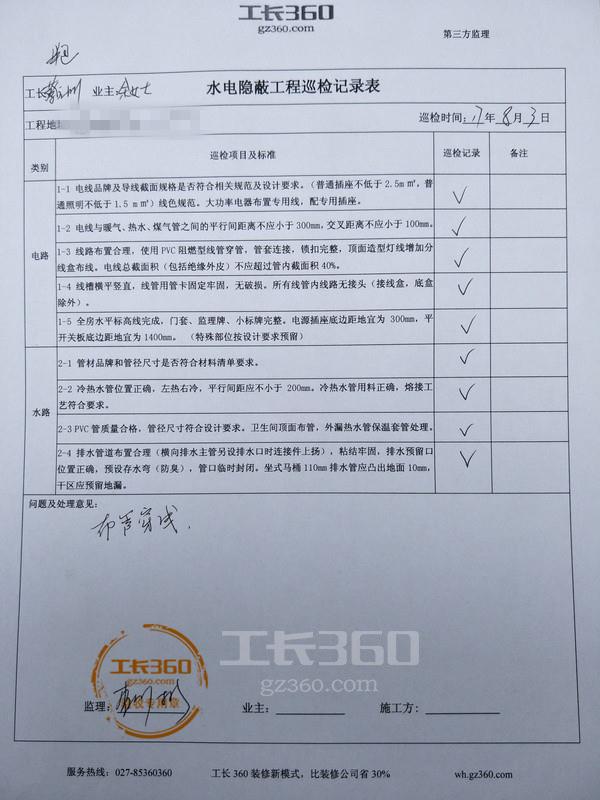 工长360
gz360.com
第三方监理
工长: 业主: 女士
水电隐蔽工程巡检记录表
工程地 巡检时间: 17年8月3日
类别 巡检项目及标准 巡检记录 备注
电路
1-1 电线品牌及导线截面规格是否符合相关规范及设计要求。（普通插座不低于2.5m㎡,普
通照明不低于1.5 m㎡）线色规范。大功率电器布置专用线，配专用插座。
√
1-2 电线与暖气、热水、煤气管之间的平行间距离不应小于300mm,交叉距离不应小于100mm。
√
1-3 线路布置合理，使用PVC阻燃型线管穿管，管套连接，锁扣完整，顶面造型灯线增加分
线盒布线。电线总截面积（包括绝缘外皮）不应超过管内截面积40%。
√
1-4 线槽横平竖直，线管用管卡固定牢固，无破损。所有线管内线路无接头（接线盒，底盒
除外）。
√
1-5 全房水平标高线完成，门套、监理牌、小标牌完整。电源插座底边距地宜为 300mm，平
开关板底边距地宜为1400mm。（特殊部位按设计要求预留）
√
水路
2-1 管材品牌和管径尺寸是否符合材料清单要求。
√
2-2 冷热水管位置正确，左热右冷，平行间距应不小于 200mm。冷热水管用料正确，熔接工
艺符合要求。
√
2-3 PVC管质量合格，管径尺寸符合设计要求。卫生间顶面布管，外漏热水管保温套管处理。
√
2-4 排水管道布置合理（横向排水主管另设排水口时连接件上扬），粘结牢固，排水预留口
位置正确，预设存水弯（防臭），管口临时封闭。坐式马桶110mm排水管应凸出地面10mm，
干区应预留地漏。
√
问题及处理意见:
布管穿线.
工长360
gz360.com
专用章
工长360
gz360.com
监理: 业主: 施工方:
服务热线: 027-85360360 工长 360 装修新模式，比装修公司省 30% wh.gz360.com